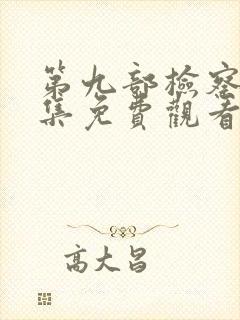 第九部檢察
集免費觀看
高大昌